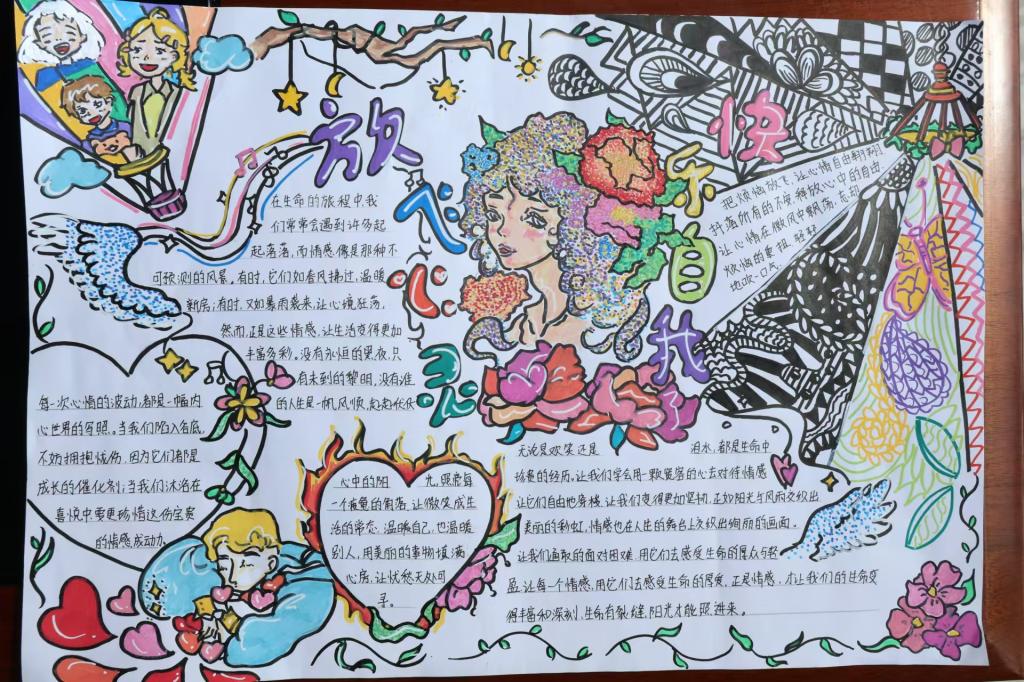 放飞心灵
快乐自我
在生命的旅程中,我
们常常会遇到许多起
起落落,而情感像是那种不
可预测的风暴。有时,它们如春风拂过,温暖
新房;有时,又如暴雨袭来,让心境狂荡,
然而,正是这些情感,让生活变得更加
丰富多彩。没有永恒的黑夜,只
有未到的黎明,没有谁
的人生是一帆风顺,起起伏伏
把烦恼放飞,让心情自由翱翔,
抖落所有的不安,释放心中的自由,
让心情在微风中飘荡,忘却
烦恼的重担,轻轻
地吹一口气。
每一次心情的波动,都是一幅内
心世界的写照。当我们陷入谷底,
不妨拥抱忧伤,因为它们都是
成长的催化剂;当我们沐浴在
喜悦中,要更珍惜这份宝贵
的情感成动力。
心中的阳光照亮每
一个疲惫的角落,让微笑成生
活的常态,温暖自己,也温暖
别人,用美丽的事物填满
心房,让忧愁无处可
寻。
无论是欢笑还是泪水,都是生命中
珍贵的经历,让我们学会用一颗宽容的心去对待情感,
让它们自由地穿梭,让我们变得更加坚韧,正如阳光与风雨交织出
美丽的彩虹,情感也在人生的舞台上交织出绚丽的画面。
让我们勇敢的面对困难,用它们去感受生命的厚众与轻
盈,让每一个情感,用它们去感受生命的厚爱,正是情感,才让我们的生命变
得丰富和深刻,生命有裂缝,阳光才能照进来。